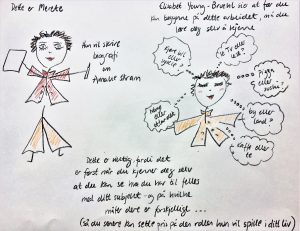 Dette er Merete
Hun vil skrive
biografi
om
Amalie Skram
Elisabet Young-Bruehl sier at før du
kan begynne på dette arbeidet, må du
lære deg selv å kjenne
Fjære sal
eller
spise
Te TV eller
lese?
Pizza
eller
sushi?
Norge
eller
utlandet
by eller
land?
Kaffe eller
te
Dette er viktig fordi det
er først når du kjenner deg selv
at du kan se hva du har til felles
med ditt subjekt - og på hvilke
måter dere er forskjellige ...
(Så du senere kan sette pris på den rollen hun vil spille i ditt liv)